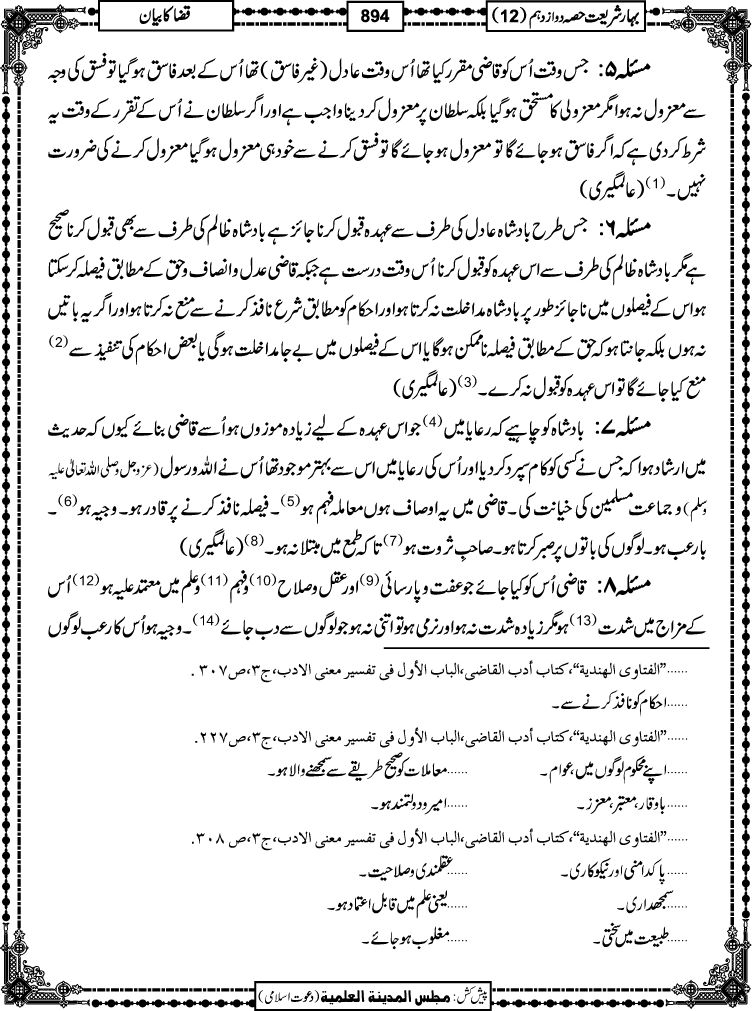 بہارشریعت حصہ دوازدہم (12)
894
قضا کا بیان
مسئلہ ۵: جس وقت اُس کو قاضی مقرر کیا تھا اُس وقت عادل (غیر فاسق) تھا اُس کے بعد فاسق ہوگیا تو فسق کی وجہ
سے معزول نہ ہوا مگر معزولی کا مستحق ہوگیا بلکہ سلطان پر معزول کردینا واجب ہے اور اگر سلطان نے اُس کے تقرر کے وقت یہ
شرط کردی ہے کہ اگر فاسق ہوجائے گا تو معزول ہوجائے گا تو فسق کرنے سے خود ہی معزول ہوگیا معزول کرنے کی ضرورت
نہیں۔(1) (عالمگیری)
مسئلہ ۶: جس طرح بادشاہ عادل کی طرف سے عہدہ قبول کرنا جائز ہے بادشاہ ظالم کی طرف سے بھی قبول کرنا صحیح
ہے مگر بادشاہ ظالم کی طرف سے اس عہدہ کو قبول کرنا اُس وقت درست ہے جبکہ قاضی عدل و انصاف و حق کے مطابق فیصلہ کرسکتا
ہو اس کے فیصلوں میں ناجائز طور پر بادشاہ مداخلت نہ کرتا ہو اور احکام کو مطابق شرع نافذ کرنے سے منع نہ کرتا ہو اور اگر یہ باتیں
نہ ہوں بلکہ جانتا ہو کہ حق کے مطابق فیصلہ ناممکن ہوگا یا اس کے فیصلوں میں بے جا مداخلت ہوگی یا بعض احکام کی تنفیذ سے (2)
منع کیا جائے گا تو اس عہدہ کو قبول نہ کرے۔(3) (عالمگیری)
مسئلہ ۷: بادشاہ کو چاہیے کہ رعایا میں (4) جو اس عہدہ کے لیے زیادہ موزوں ہو اُسے قاضی بنائے کیوں کہ حدیث
میں ارشاد ہوا کہ جس نے کسی کو کام سپرد کردیا اور اُس کی رعایا میں اس سے بہتر موجود تھا اُس نے اللہ و رسول (عزوجل وصلی اللہ تعالیٰ علیہ
وسلم) و جماعت مسلمین کی خیانت کی۔ قاضی میں یہ اوصاف ہوں معاملہ فہم ہو (5)۔ فیصلہ نافذ کرنے پر قادر ہو۔ وجیہ ہو (6)۔
بارعب ہو۔ لوگوں کی باتوں پر صبر کرتا ہو۔ صاحبِ ثروت ہو (7) تاکہ طمع میں مبتلا نہ ہو۔(8) (عالمگیری)
مسئلہ ۸: قاضی اُس کو کیا جائے جو عفت و پارسائی (9) اور عقل و صلاح (10) و فہم (11) و علم میں معتمد علیہ ہو (12) اُس
کے مزاج میں شدت (13) ہو مگر زیادہ شدت نہ ہو اور نرمی ہو تو اتنی نہ ہو جو لوگوں سے دب جائے (14)۔ وجیہ ہو اُس کا رعب لوگوں
......”الفتاوی الھندیة“،کتاب أدب القاضی،الباب الأول فی تفسیر معنی الادب،ج۳،ص۳۰۷.
......احکام کو نافذ کرنے سے۔
......”الفتاوی الھندیة“،کتاب أدب القاضی،الباب الأول فی تفسیر معنی الادب،ج۳،ص۲۲۷.
......اپنے محکوم لوگوں میں، عوام۔ ......معاملات کو صحیح طریقے سے سمجھنے والا ہو۔
......باوقار، معتبر، معزز۔ ......امیر و دولتمند ہو۔
......”الفتاوی الھندیة“،کتاب أدب القاضی،الباب الأول فی تفسیر معنی الادب،ج۳،ص ۳۰۸.
......پاکدامنی اور نیکوکاری۔ ......عقلمندی و صلاحیت۔
......سمجھداری۔ ......یعنی علم میں قابل اعتماد ہو۔
......طبیعت میں سختی۔ ......مغلوب ہوجائے۔
پیش کش: مجلس المدینة العلمیة (دعوت اسلامی)